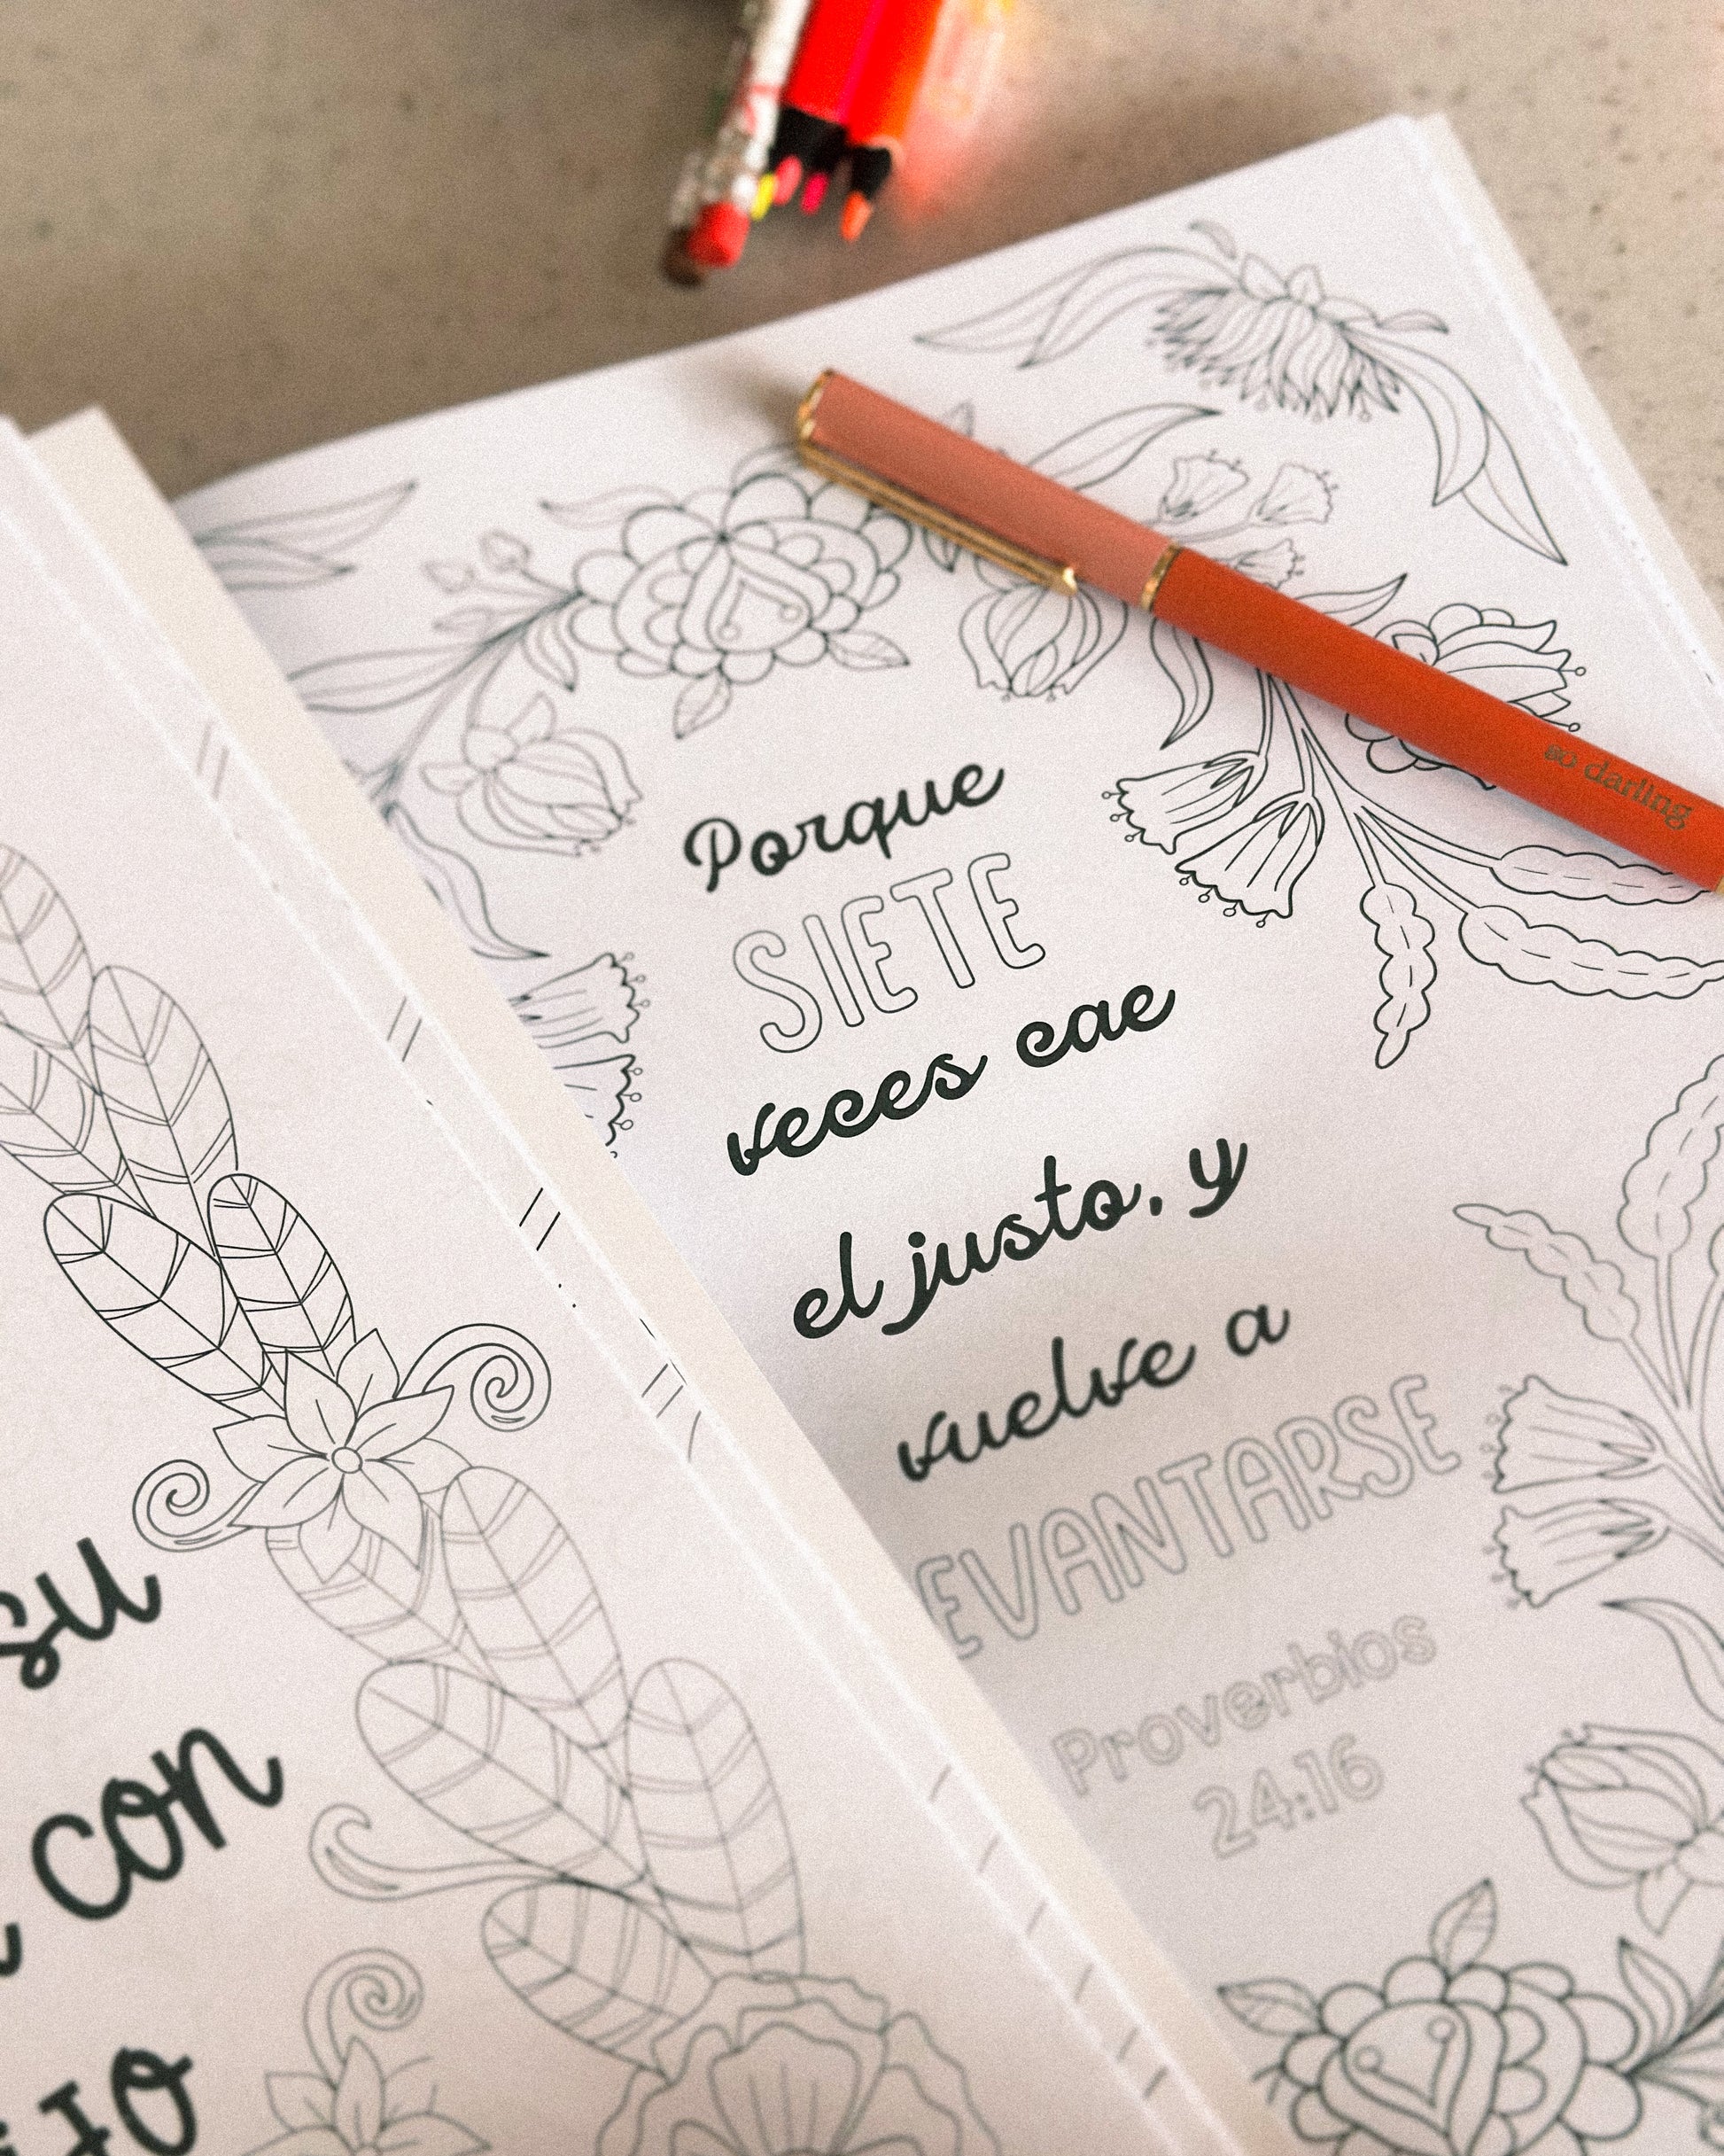 so darling
Porque
SIETE
veces cae
el justo, y
vuelve a
EVANTARSE
Proverbios
24:16
su
con